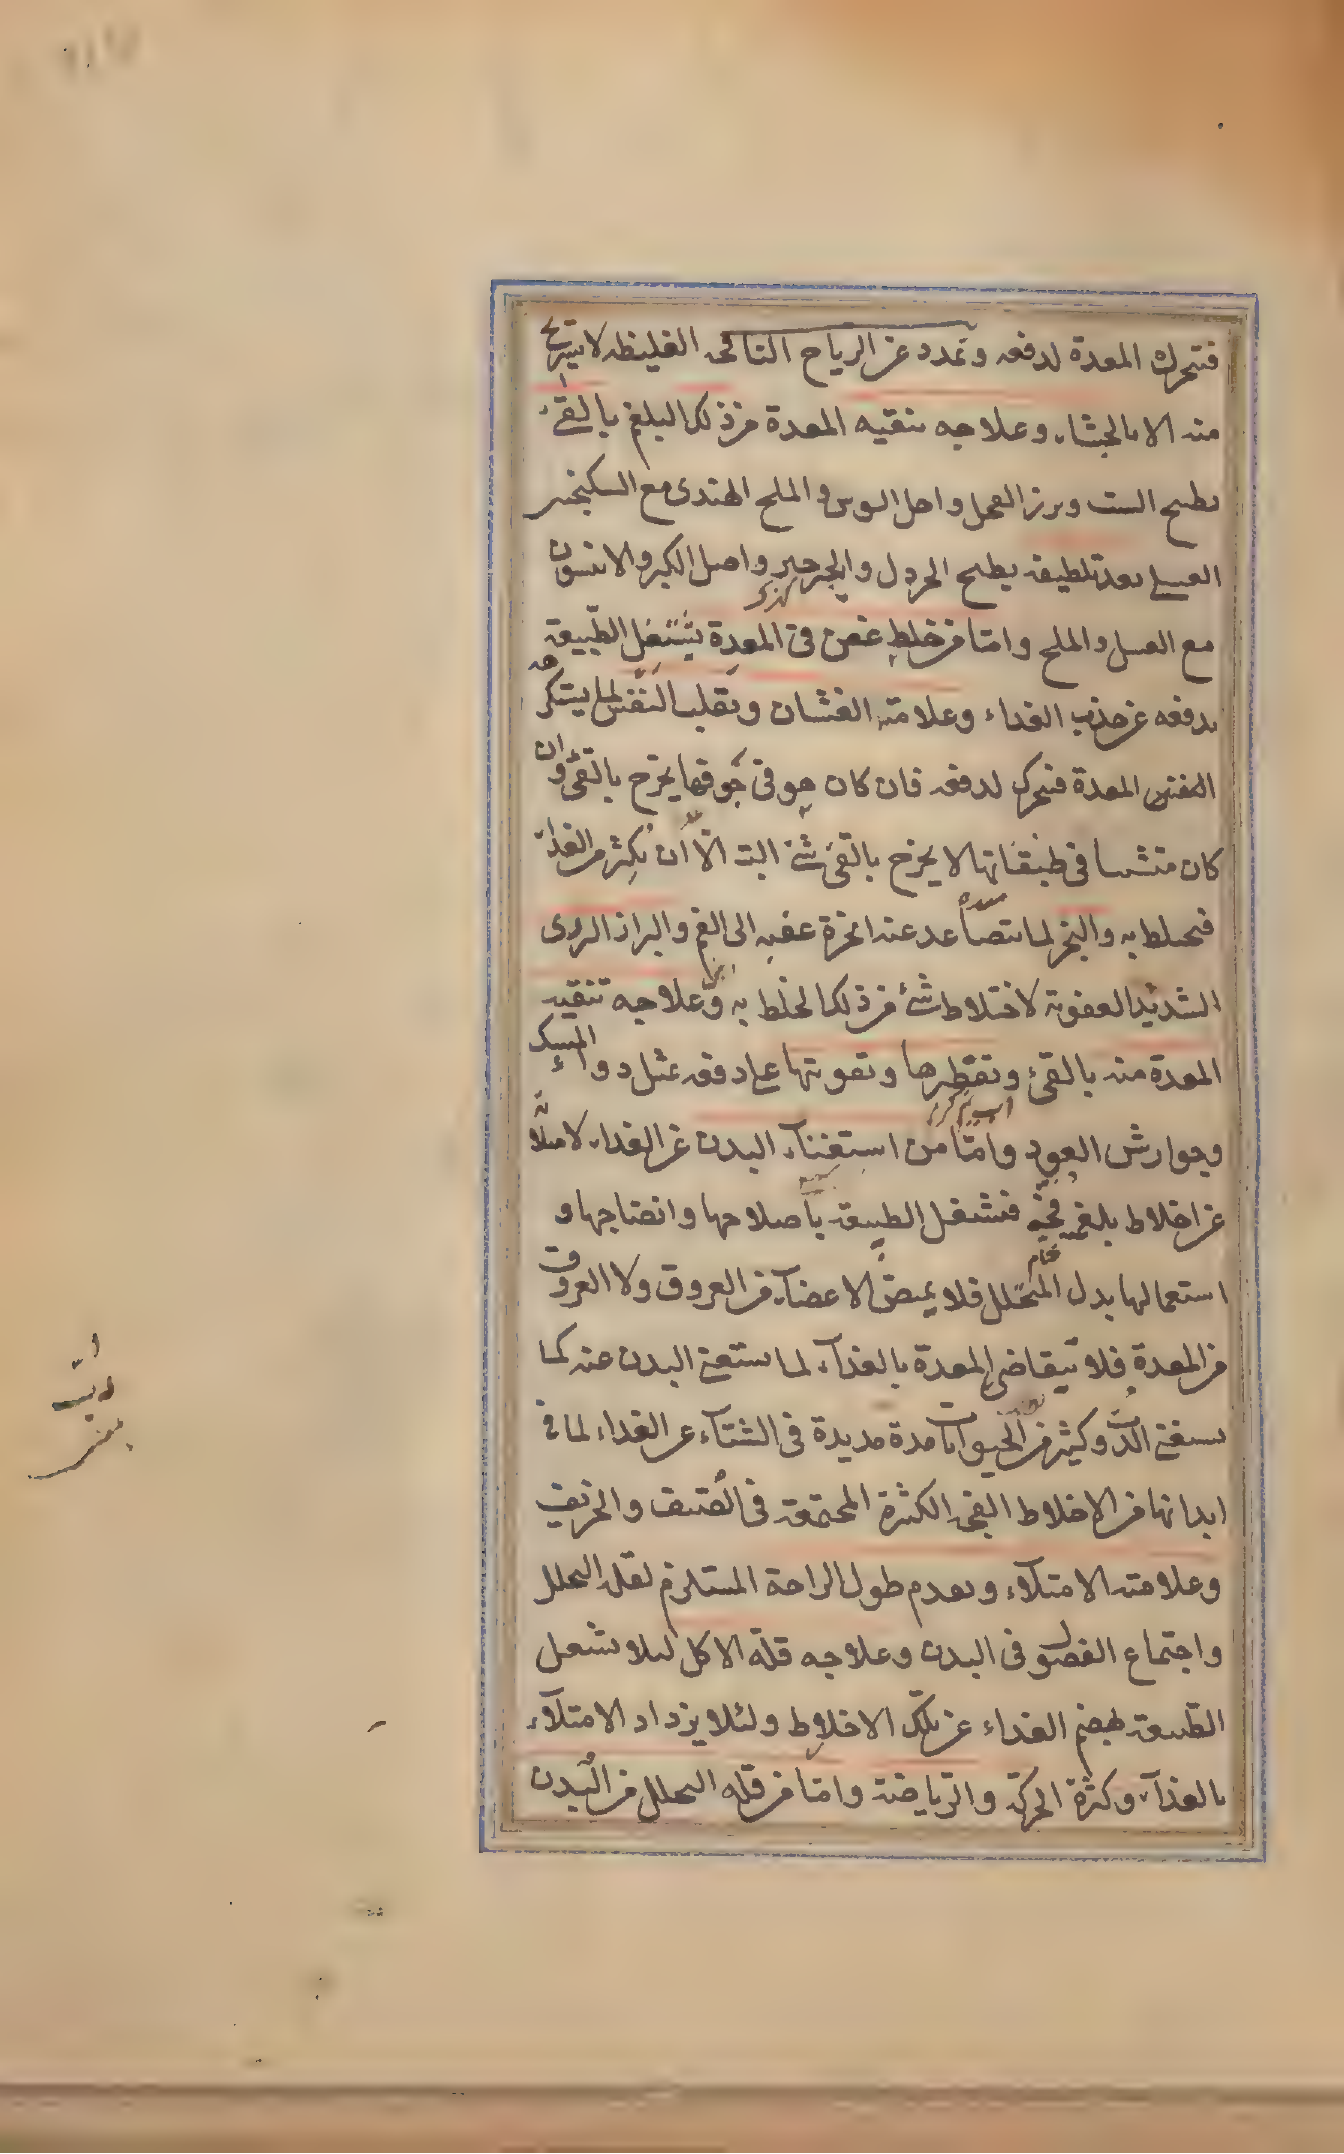 فتتحرك المعدة لدفعه وتمدد عن الرياح النافخه الغليظه لا يستريح
منه الا بالجشاء وعلاجه تنقيه المعدة من ذلك البلغم بالقئ
بطبيخ الشبت وبزر الفجل واصل السوس والملح الهندى مع السكنجبين
العسلى بعد تلطيفه بطبيخ الخردل والجرجير واصل الكبر والانيسون
مع العسل والملح واما من خلط عفن فى المعدة يشتغل الطبيعه
بدفعه عن جذب الغداء وعلامته الغشان وتقلب النفس لما يستكره
النفس المعدة فتحرك لدفعه فان كان هو فى جوفها يخرج بالقئ وان
كان متشربا فى طبقاتها لا يخرج بالقئ شئ البته الا ان يكثر من الغداء
فيختلط به والبخر لما يتصاعد عنه ابخرة عفنه الى الفم والبراز الردى
الشديد العفونة لاختلاط شئ من ذلك الخلط به وعلاجه تنقيه
المعدة منه بالقئ وتقطيرها وتقويتها على دفعه بمثل دواء المسك
وجوارش العود واما من استغناء البدن عن الغداء لامتلائه
عن اخلاط بلغميه فجه فتشتغل الطبيعه باصلاحها وانضاجها و
خام
استعمالها بدل المتحلل فلا يمص الاعضاء من العروق ولا العروق
من المعدة فلا يتقاضى المعدة بالغذاء لما يستغنى البدن عنه كما
يستغنى الدب وكثير من الحيوانات مدة مديدة فى الشتاء عن الغداء لما فى
ابدانها من الاخلاط الفجه الكثيرة المجتمعه فى الصيف والخريف
وعلامته الامتلاء وتقدم طول الراحة المستلزم لقله التحلل
واجتماع الفضول فى البدن وعلاجه قلة الاكل لئلا يشتغل
الطبيعه بهضم الغداء عن تلك الاخلاط ولئلا يزداد الامتلاء
بالغذاء وكثرة الحركة والرياضة واما من قله التحلل من البدن